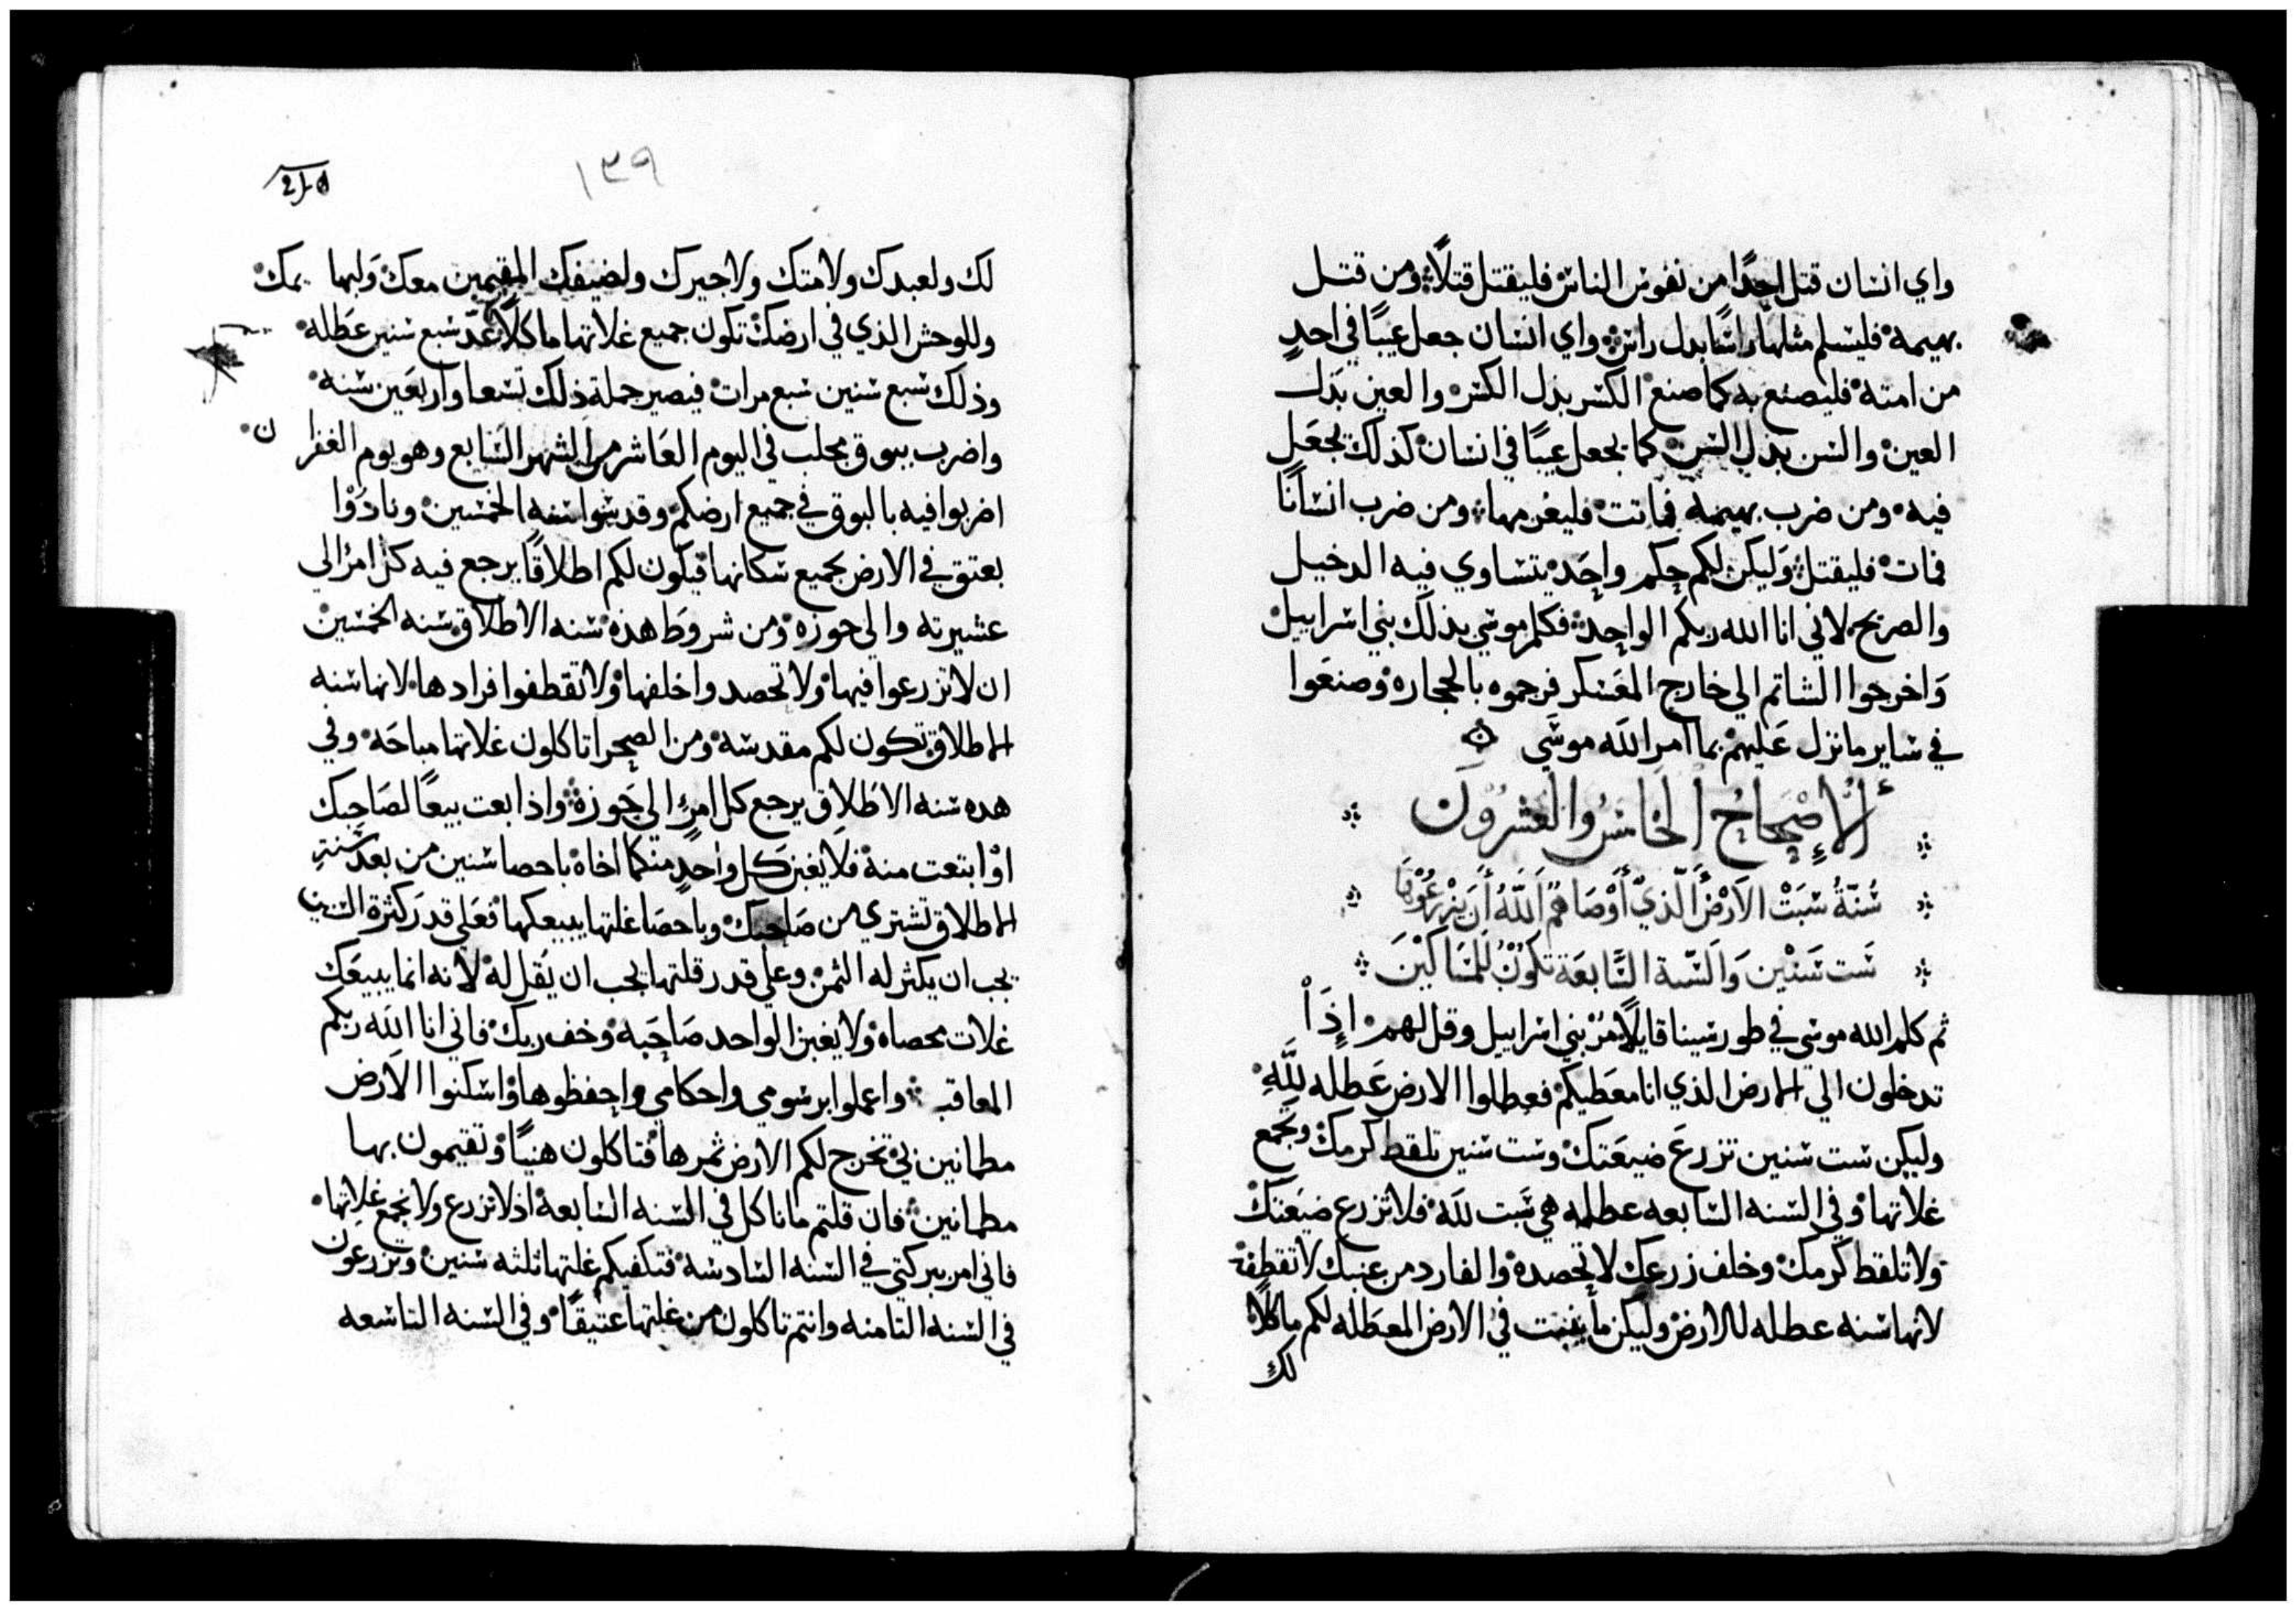 واي انسان قتل احدًا من نفوس الناس فليقتل قتلًا ومن قتل
بهيمة فليسلم مثلها راسًا بدل راس واي انسان جعل عيبًا في احدٍ
من امته فليصنع به كما صنع الكسر بدل الكسر والعين بدل
العين والسن بدل السن كما يجعل عيبًا في انسان كذلك يجعل
فيه ومن ضرب بهيمة فماتت فليغرمها ومن ضرب انسانًا
فمات فليقتل وليكن لكم حكم واحد يتساوي فيه الدخيل
والصريح لاني انا الله ربكم الواحد فكلم موسي بذلك بني اسراييل
واخرجوا الشاتم الي خارج المعسكر فرجموه بالحجاره وصنعوا
في ساير ما نزل عليهم بما امر الله موسَي
الإصحاح الخامس والعشرون
سُنّةُ سَبَتْ الارْض الّذيّ أوْصَاهم اللّه أن يزرعُوْهَا
سَت سَنْين وَالسّنة السَّابعَة تكوْن للمسَاكيْنَ
ثم كلم الله موسي في طور سينا قايلًا مُرْ بني اسراييل وقل لهم اذَاْ
تدخلون الي الارض الذي انا معطيكم فعطلوا الارض عَطله للّهِ
وليكن ست سنين تزرعَ ضيعَتك وست سنين تلقط كرمك وتجمع
غلاتها وفي السنه السابعه عطله هي سَبت للَه فلا تزرع ضيَعَتك
ولا تلقط كرمك وخلف زرعك لا تحصده والفارد من عنبك لا تقطفه
لانها سنه عطله للارض وليكن ما ينبت في الارض المعطَله لكم ماكلًا
لك
١٣٩
لك ولعبدك ولامتك ولاجيرك ولضيفك المقيمين معك وَلبهايمك
وللوحش الذي في ارضك تكون جميع غلاتها ماكلًا عدّ سبع سنين عَطله
وذلك سبع سنين سبع مرات فيصير جملة ذلك تسعا واربعَين سنه
واضرب ببوق مجلب في اليوم العَاشر من الشهر السَابع وهو يوم الغفران
اضربوا فيه بالبوق في جميع ارضكم وقدسوا سنه الخمسين ونادُوْا
بعتق في الارض لجميع سكانها فيكون لكم اطلاقًا يرجع فيه كل امرُ الي
عشيرته والي حوزه ومن شروط هذه سنه الاطلاق سنه الخمسين
ان لا تزرعوا فيها ولا تحصدوا خلفها ولا تقطفوا فرادها لانها سنه
الاطلاق تكون لكم مقدسه ومن الصحرا تاكلون غلاتها مباحَه وفي
هده سنه الاطلاق يرجع كل امرٍ الي حَوزه واذا بعت بيعًا لصَاحبك
اوْ ابتعت منه فلا يغبن كل واحدٍ منكما اخاه باحصا سنين من بعد سَنةِ
الاطلاق تشتري من صَاحبك وباحصَا غلتها يبيعكها فعَلي قدرَ كثرة السنين
يجب ان يكثر له الثمن وعلي قدر قلتها يجب ان يَقل له لانه انما يبيعَك
غلات محصاه ولا يغبن الواحد صَاحبَه وخف ربك فاني انا اللَه ربكم
المعاقب واعملوا برسومي واحكامي واحفظوها واسكنوا الاَرض
مطمانين في تخرج لكم الارض ثمرها فتاكلون هنيًا وتقيمون بها
مطمانين فان قلتم ما ناكل في السنه السَابعه اذ لا نزرع ولا نجمع غلاتها
فاني امر ببركتي في السنه السَادسه فتكفيكم غلتها ثلثه سنين وتزرعون
في السَنه الثامنه وانتم تاكلون من غلتها عتيقًا وفي السنه التاسعه